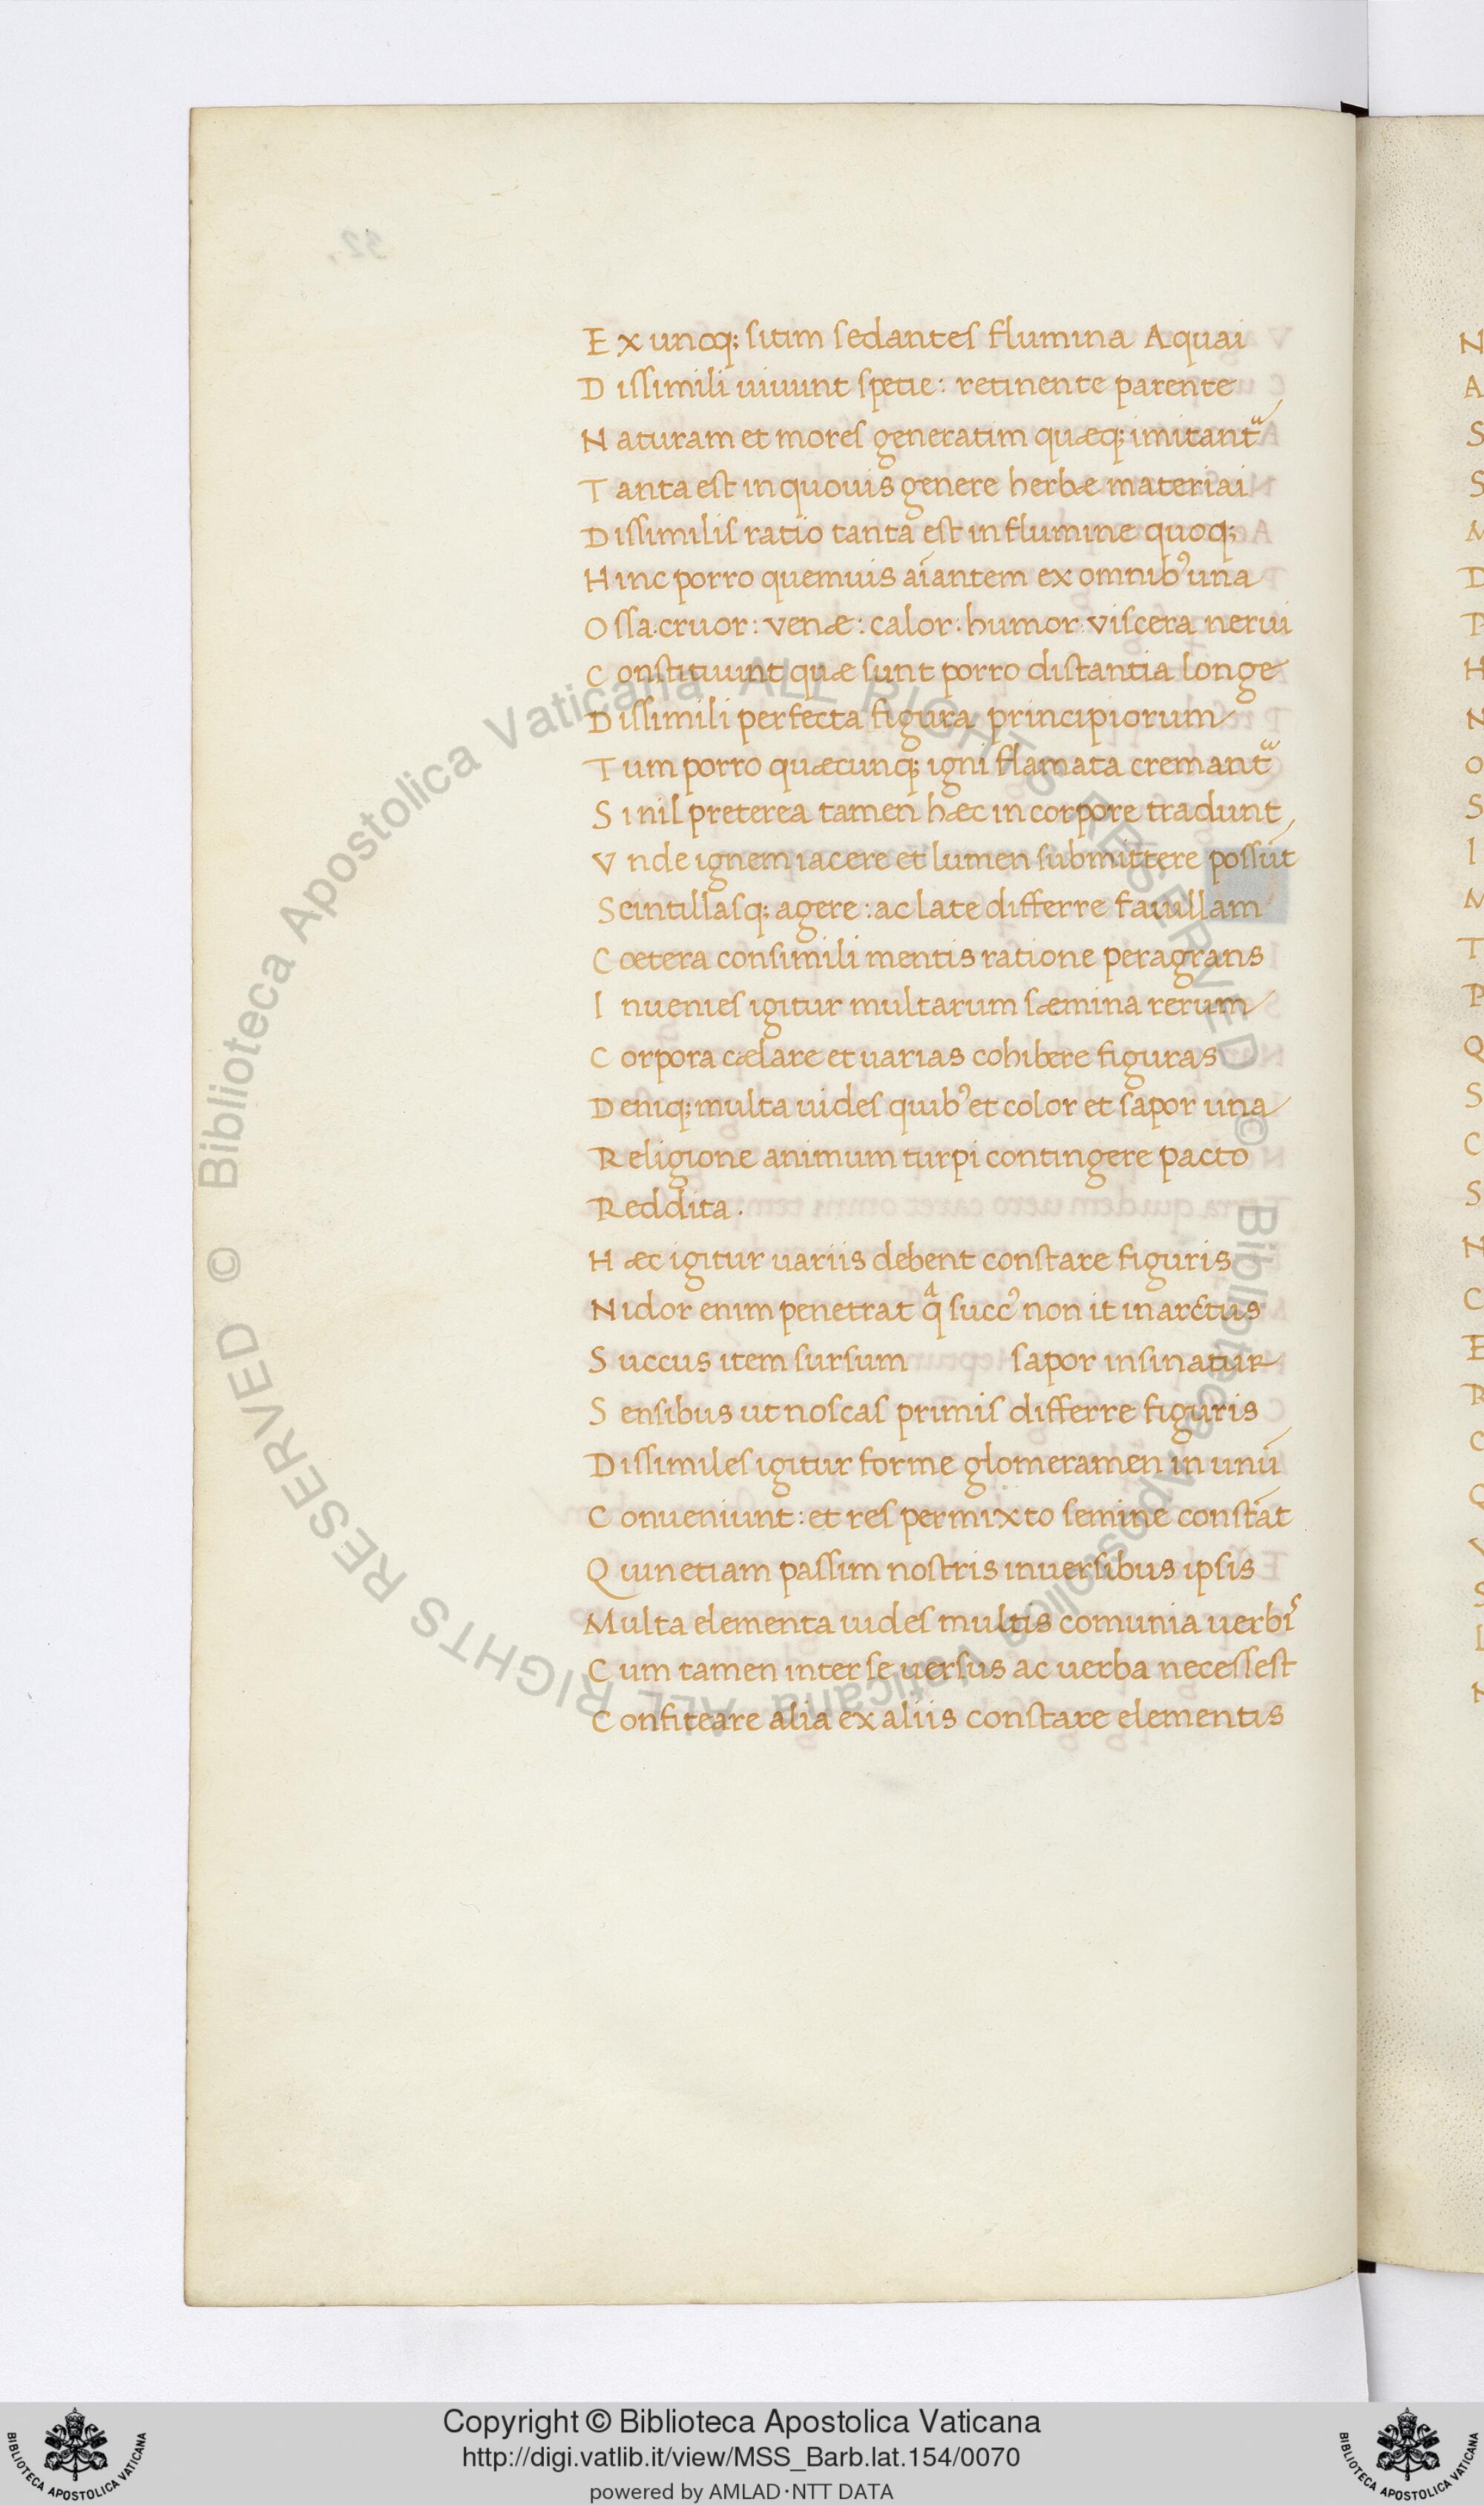 E x unoq; sitim sedantes flumina Aquai
D issimili uiuunt spetie: retinente parente
N aturam et mores generatim quæq; imitant᷑
T anta est in quouis genere herbæ materiai
D issimilis ratio tanta est in flumine quoq;
H inc porro quemuis aīantem ex omnibꝰ una
O ssa.cruor: venæ: calor: humor: viscera nerui
C onstituunt quæ sunt porro distantia longe
D issimili perfecta figura principiorum
T um porro quæcunq; igni flamata cremant᷑
S i nil preterea tamen hæc in corpore tradunt
V nde ignem iacere et lumen submittere possūt
S cintillasq; agere: ac late differre fauillam
C oetera consimili mentis ratione peragrans
I nuenies igitur multarum sæmina rerum
C orpora cælare et uarias cohibere figuras
D eniq; multa uides quibꝰ et color et sapor una
R eligione animum turpi contingere pacto
R eddita.
H æc igitur uariis debent constare figuris
N idor enim penetrat qᵃ succꝰ non it in arctus
S uccus item sursum sapor insinatur
S ensibus ut noscas primis differre figuris
D issimiles igitur forme glomeramen in unū
C onueniunt: et res permixto semine constāt
Q uin etiam passim nostris in uersibus ipsis
M ulta elementa uides multis comunia uerbiˢ
C um tamen inter se uersus ac uerba necessest
C onfiteare alia ex aliis constare elementis
Copyright © Biblioteca Apostolica Vaticana
http://digi.vatlib.it/view/MSS_Barb.lat.154/0070
powered by AMLAD·NTT DATA